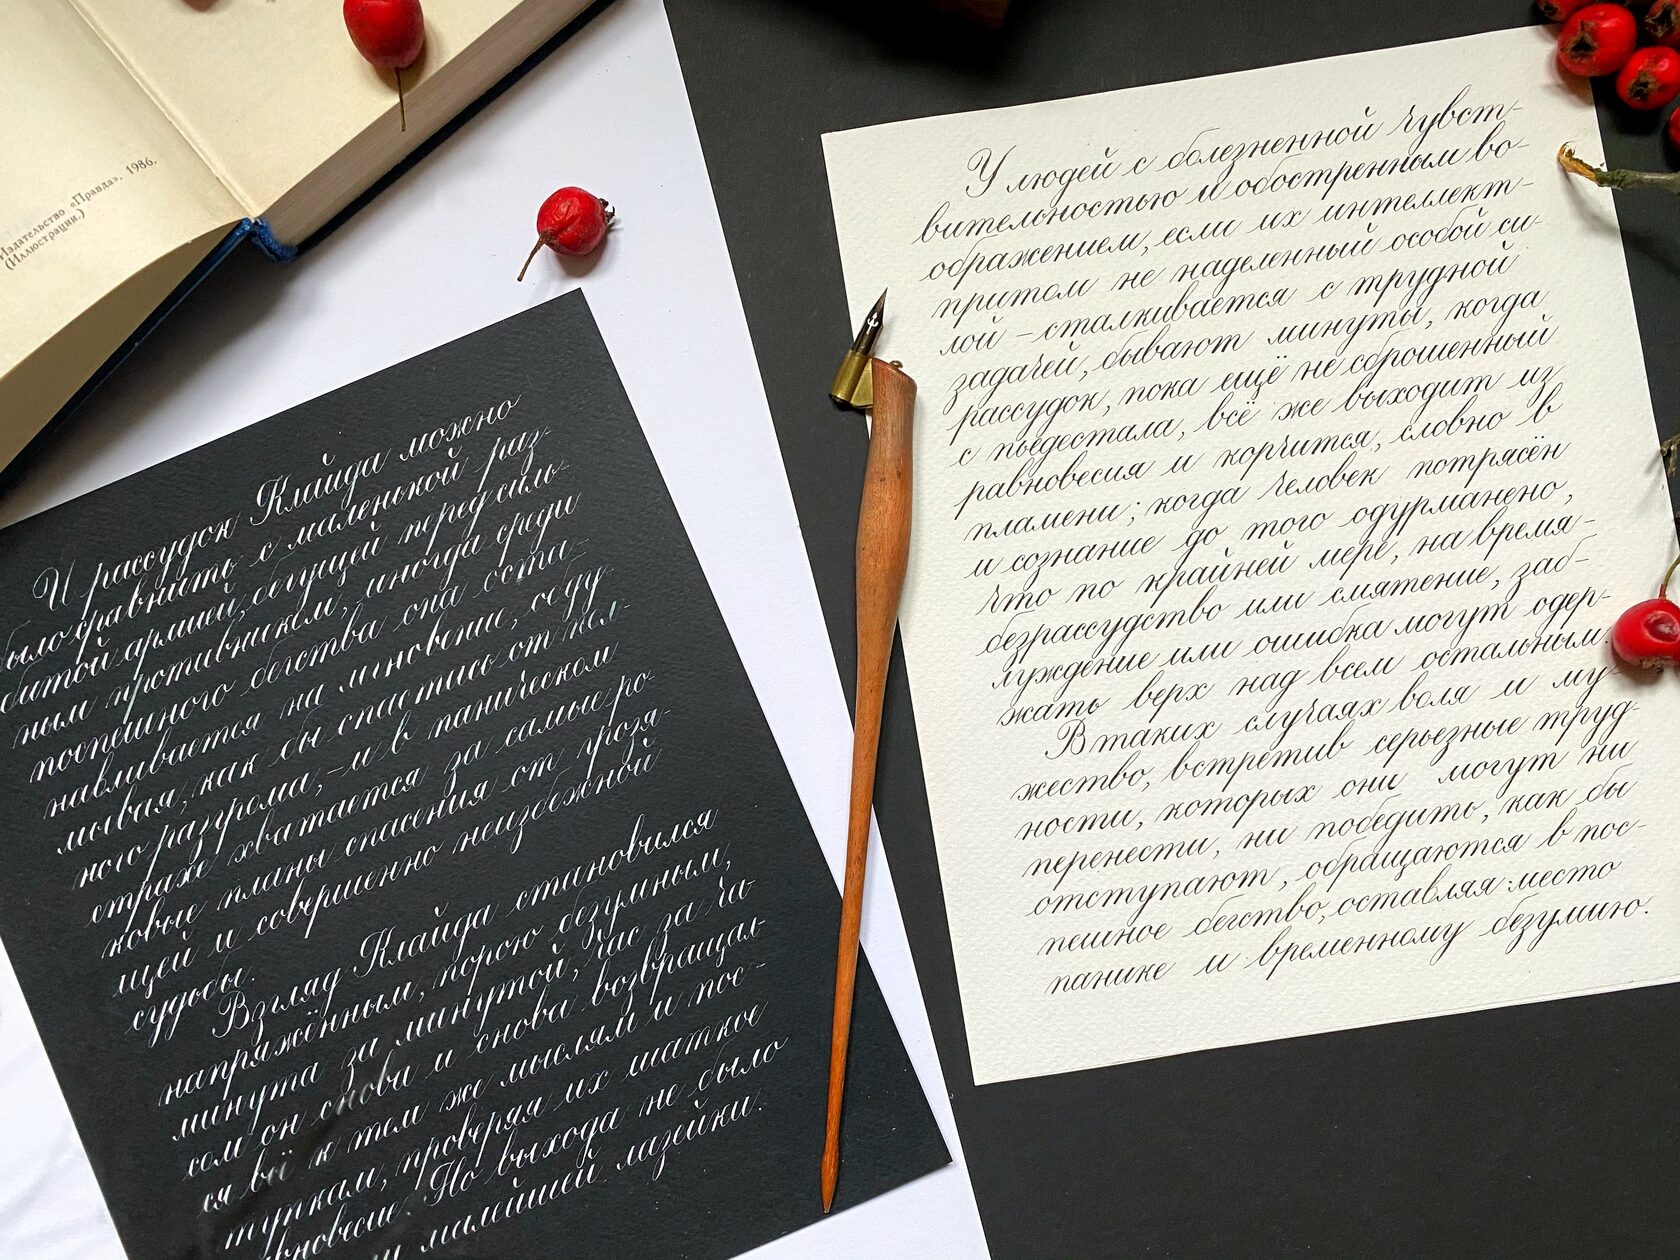 Издательство «Правда». 1986.
(Иллюстрации.)
И рассудок Клайда можно
было сравнить с маленькой раз-
битой армией, бегущей перед силь-
ным противником, иногда среди
поспешного бегства она оста-
навливается на мгновение, обду-
мывая, как бы спастись от пол-
ного разгрома, – и в паническом
страхе хватается за самые ро-
ковые планы спасения от грозя-
щей и совершенно неизбежной
судьбы.
Взгляд Клайда становился
напряжённым, порою безумным,
минута за минутой, час за ча-
сом он снова и снова возвращал-
ся всё к тем же мыслям и пос-
тупкам, проверяя их шаткое
вновесие. Но выхода не было
малейшей лазейки.
У людей с болезненной чувст-
вительностью и обостренным во-
ображением, если их интеллект-
притом не наделенный особой си-
лой – сталкивается с трудной
задачей, бывают минуты, когда
рассудок, пока ещё не сброшенный
с пьедестала, всё же выходит из
равновесия и корчится, словно в
пламени; когда человек потрясён
и сознание до того одурманено,
что по крайней мере, на время-
безрассудство или смятение, заб-
луждение или ошибка могут одер-
жать верх над всем остальным.
В таких случаях воля и му-
жество, встретив серьезные труд-
ности, которых они могут ни
перенести, ни победить, как бы
отступают, обращаются в пос-
пешное бегство, оставляя место
панике и временному безумию.